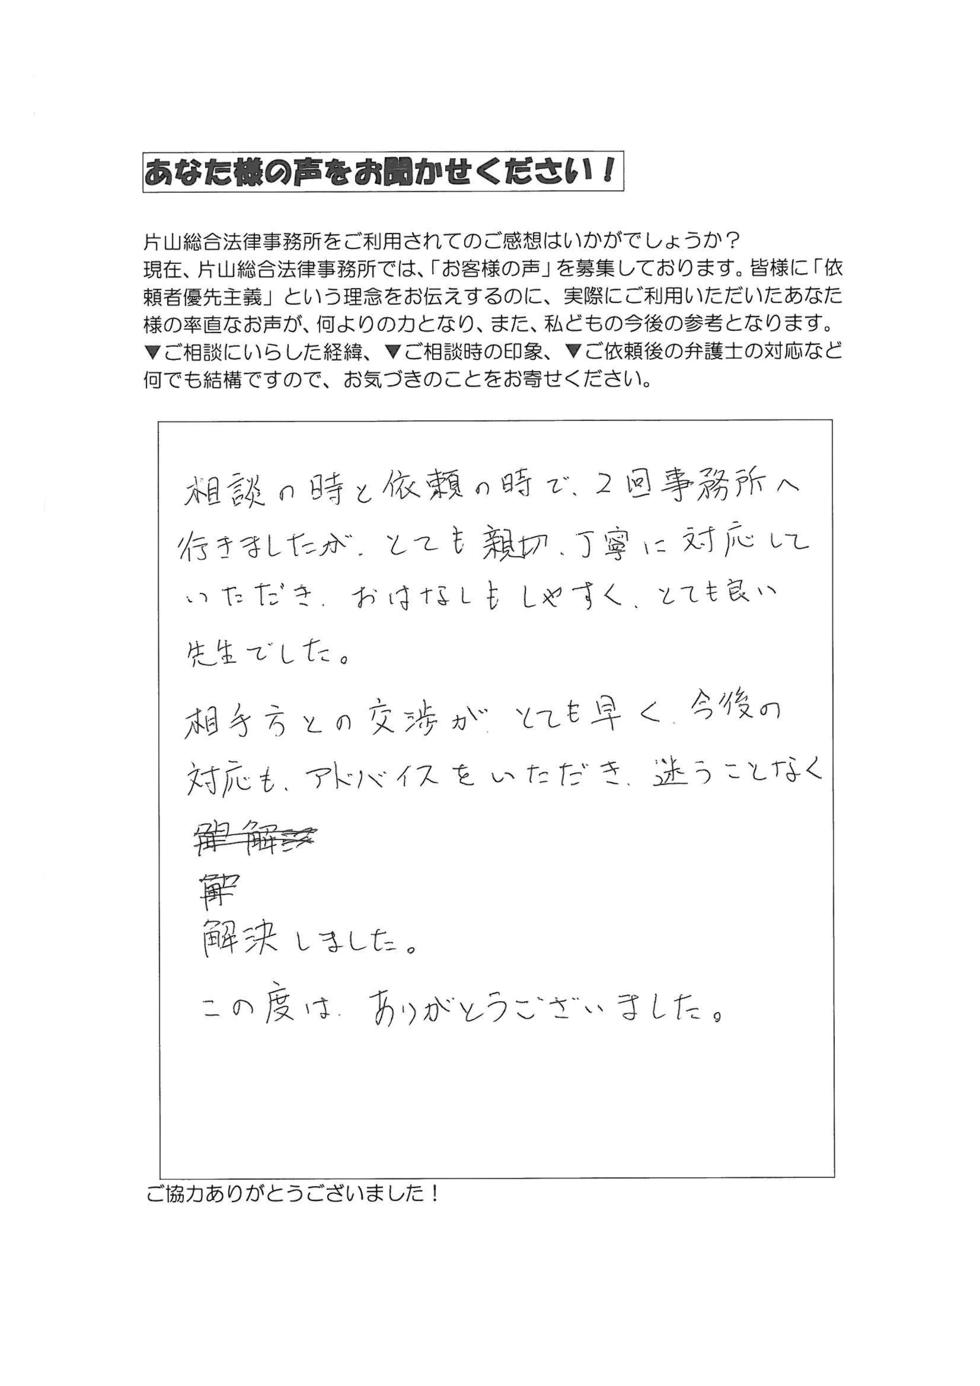 あなた様の声をお聞かせください！
片山総合法律事務所をご利用されてのご感想はいかがでしょうか？
現在、片山総合法律事務所では、「お客様の声」を募集しております。皆様に「依
頼者優先主義」という理念をお伝えするのに、実際にご利用いただいたあなた
様の率直なお声が、何よりの力となり、また、私どもの今後の参考となります。
▼ご相談にいらした経緯、▼ご相談時の印象、▼ご依頼後の弁護士の対応など
何でも結構ですので、お気づきのことをお寄せください。
相談の時と依頼の時で、2回事務所へ
行きましたが、とても親切、丁寧に対応して
いただき、おはなしもしやすく、とても良い
先生でした。
相手方との交渉が、とても早く、今後の
対応も、アドバイスをいただき、迷うことなく
解決しました。
この度は、ありがとうございました。
ご協力ありがとうございました！